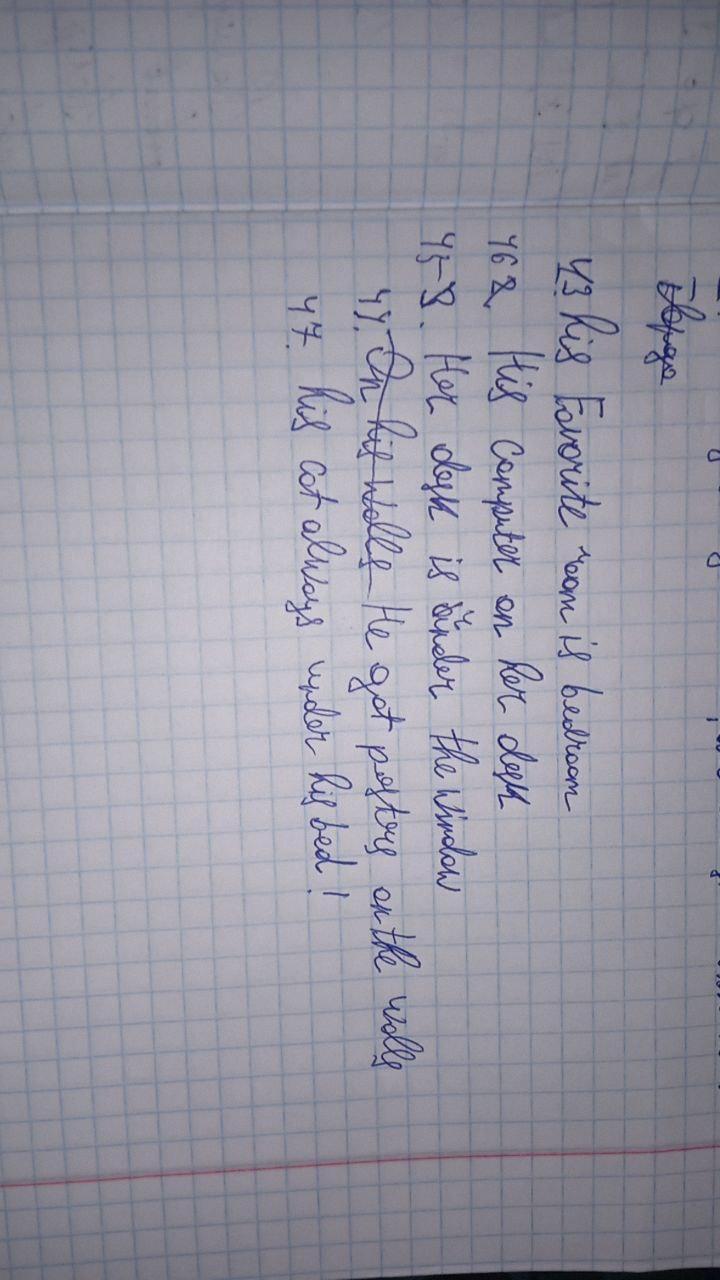 43 his Favorite room is bedroom
46 2. His computer on her desk
45-8. Her desk is under the window
44. On his walls He got posters on the walls
47. his cat always under his bed!